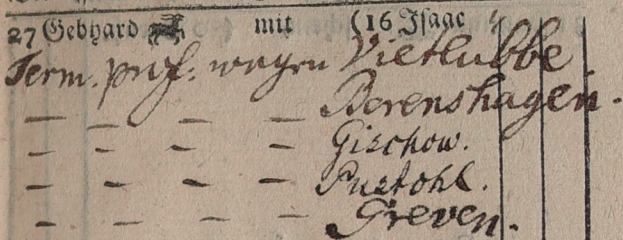 27 Gebhard mit (16 Isaac
Term. prof: wegen Vietlubbe
— — — — Berenshagen.
— — — — Gischow.
— — — — Pustohl.
— — — — Greven.